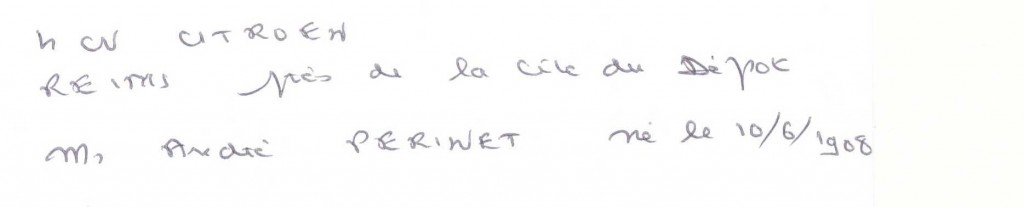 4 CV CITROEN
REIMS près de la cité du Dépot
M. André PERINET né le 10/6/1908